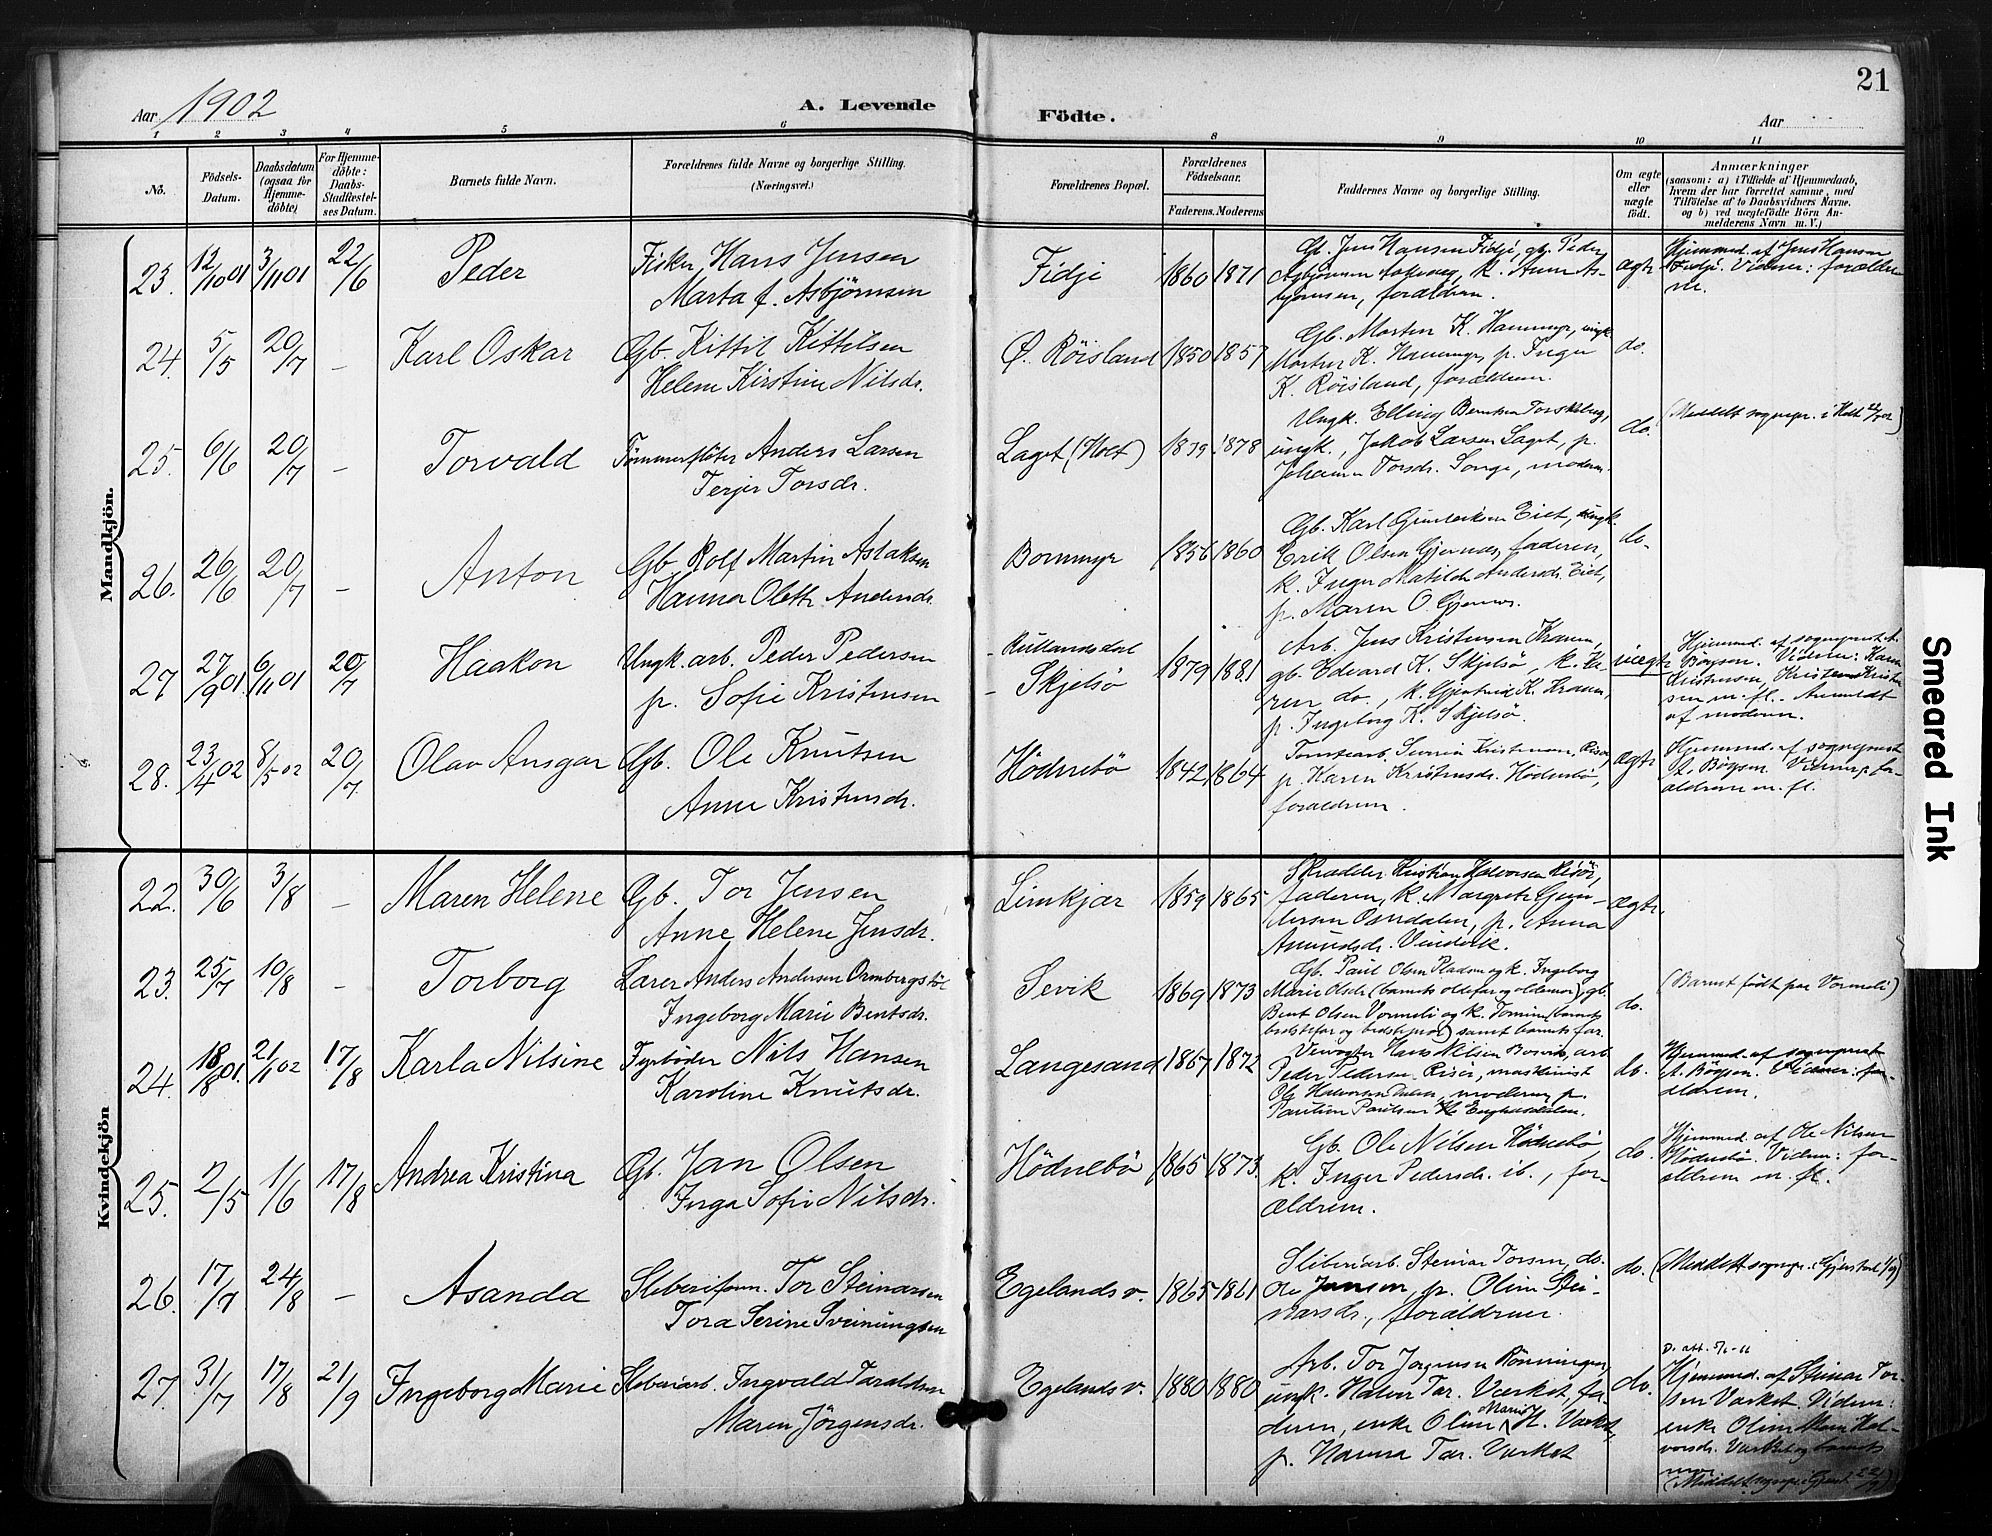 21
Aar 1902
A. Levende
Födte.
Aar
1 2 3 4 5 6 8 9 10 11
No.
Födsels-
Datum.
Daabsdatum
(ogsaa for
Hjemme-
döbte)
For Hjemme-
döbte:
Daabs-
Stadfæstel-
ses Datum.
Barnets fulde Navn.
Forældrenes fulde Navne og borgerlige Stilling.
(Næringsvei.)
Forældrenes Bopæl.
Forældrenes
Födselsaar.
Faderens. Moderens
Faddernes Navne og borgerlige Stilling.
Om ægte
eller
uægte
födt.
Anmærkninger
(saasom: a) i Tilfælde af Hjemmedaab,
hvem der har forrettet samme, med
Tilföielse af to Daabsvidners Navne.
og b) ved uægtefödte Börn An-
melderens Navn m. V.)
Mandkjön.
23. 12/10 01 3/11 01 22/6 Peder
Fisker Hans Jensen
Marta f. Asbjörnsen
Fidje 1860 1871
Gb. Jens Hansen Fidje, gb. Peder
k. Anne As-
björnsen, forældrene.
ægte
Hjemmed. af Jens Hansen
Fidje. Vidner: forældre-
ne.
24. 5/5 20/7 – Karl Oskar
Gb. Kittil Kittilsen
Helene Kirstine Nilsdr.
Ö. Röisland 1850 1857
Gb. Morten K. Hammyr, ungk.
Morten K. Hammyr, p. Inger
K. Röisland, forældrene.
do.
25. 6/6 20/7 – Torvald
Tömmerflöter Anders Larsen
Terjer Torsdr.
Laget (Holt) 1879 1878
Ungk. Elling Berntsen
ungk. Jakob Larsen Laget, p.
Johanne Torsdr. Songe, moderen.
do.
(Meddelt sognepr. i Holt 22/7 02)
26. 26/6 20/7 – Anton
Gb. Rolf Martin Aslaksen
Hanna Oleth. Andersdr.
Bommyr 1856 1860
Gb. Karl Gunderksen Eiet, ungk.
Erik Olsen Gjernes, faderen,
k. Inger Matilde Andersdr. Eiet,
p. Maren O. Gjernes.
do.
27 27/9 01. 6/11 01 20/7 Haakon
Ungk. arb. Peder Pedersen
p. Sofie Kristensen
- Rutlandsdal
- Skjelsö
1879 1881
Arb. Jens Kristensen Kranen,
gb. Edvard K. Skjelsö, k. Ka-
ren do, k. Gjertrud K. Kranen,
p. Ingeborg K. Skjelsö.
uægte
Hjemmed. af sogneprest A.
Bögsen. Vidner: Karen
Kristensen, Kristense Kristen-
sen m. fl. Anmeldt
af moderen.
28. 23/4 02 8/5 02 20/7. Olav Ansgar
Gb. Ole Knutsen
Anne Kristensdr.
Hödnebö 1842 1864
Tomtearb. Severin Kristensen, Risör,
p. Karen Kristensdr. Hödnebö,
forældrene.
ægte
Hjemmed. af sogneprest
A. Bögsen. Vidner: for-
ældrene m. fl.
Kvindekjön
22. 30/6 3/8 – Maren Helene
Gb. Tor Jensen
Anne Helene Jensdr.
Limkjær 1859 1865
Skrædder Kristian Halvorsen Risör,
faderen, k. Margrete Gun-
dersen Osmdalen, p. Anna
Amundsdr. Vinderik.
ægte.
23. 25/7 10/8 – Torborg
Lærer Anders Andersen Ormbergstöl
Ingeborg Marie Bentsdr.
Sevik 1869 1873
Gb. Paul Olsen Pladsen og k. Ingeborg
Marie Olsdr (barnets oldefar og oldemor), gb.
Bent Olsen Vormeli og k. Tomine (barnets
bedstefar og bedstemor) samt barnets far.
do.
(Barnet född paa Vormeli)
24. 18/8 01. 21/1 02 17/8 Karla Nilsine
Fyrböder Nils Hansen
Karoline Knutsdr.
Langesand 1867 1872
Hans Nilsen arb.
Peder Pedersen Risör, maskinist
Ole Halvorsen moderen, p.
Pauline Paulsen
do.
Hjemmed. af sogneprest
A. Bögsen. Vidner: for-
ældrene.
25. 2/5 1/6 17/8 Andrea Kristina
Gb. Jan Olsen
Inga Sofie Nilsdr.
Hödnebö 1865 1873.
Gb. Ole Nilsen Hödnebö,
k. Inger Pedersdr. ib., for-
ældrene.
do.
Hjemmed. af Ole Nilsen
Hödnebö. Vidner: for-
ældrene m. fl.
26. 17/7 24/8 – Asanda
Sliberiform. Tor Steinarsen
Tora Serine Sveinungsen
Egelands v. 1865 1861
Sliberiarb. Steinar Torsen, do.
Ole Jansen, p. Oline Stei-
narsdr., forældrene.
do.
(Meddelt sognepr. i Gjerstad 1/9)
27. 31/7 17/8 21/9 Ingeborg Marie
Sliberiarb. Ingvald Taraldsen
Maren Jörgensdr.
Egelands v. 1880 1880
Arb. Tor Jorgensen Rönningen,
ungk. Halvor Tar. Værket, fa-
deren, enke Oline Marie H. Værket,
p. Hanna Tar. Værket
do.
D. att. 5/1-11
Hjemmed. af Steinar Tor-
sen Værket. Vidner:
enke Oline Marie Hal-
vorsdr. Værket og barnets
mor.
(Meddelt sognepr. i Gjerst. 22/9)
Smeared Ink